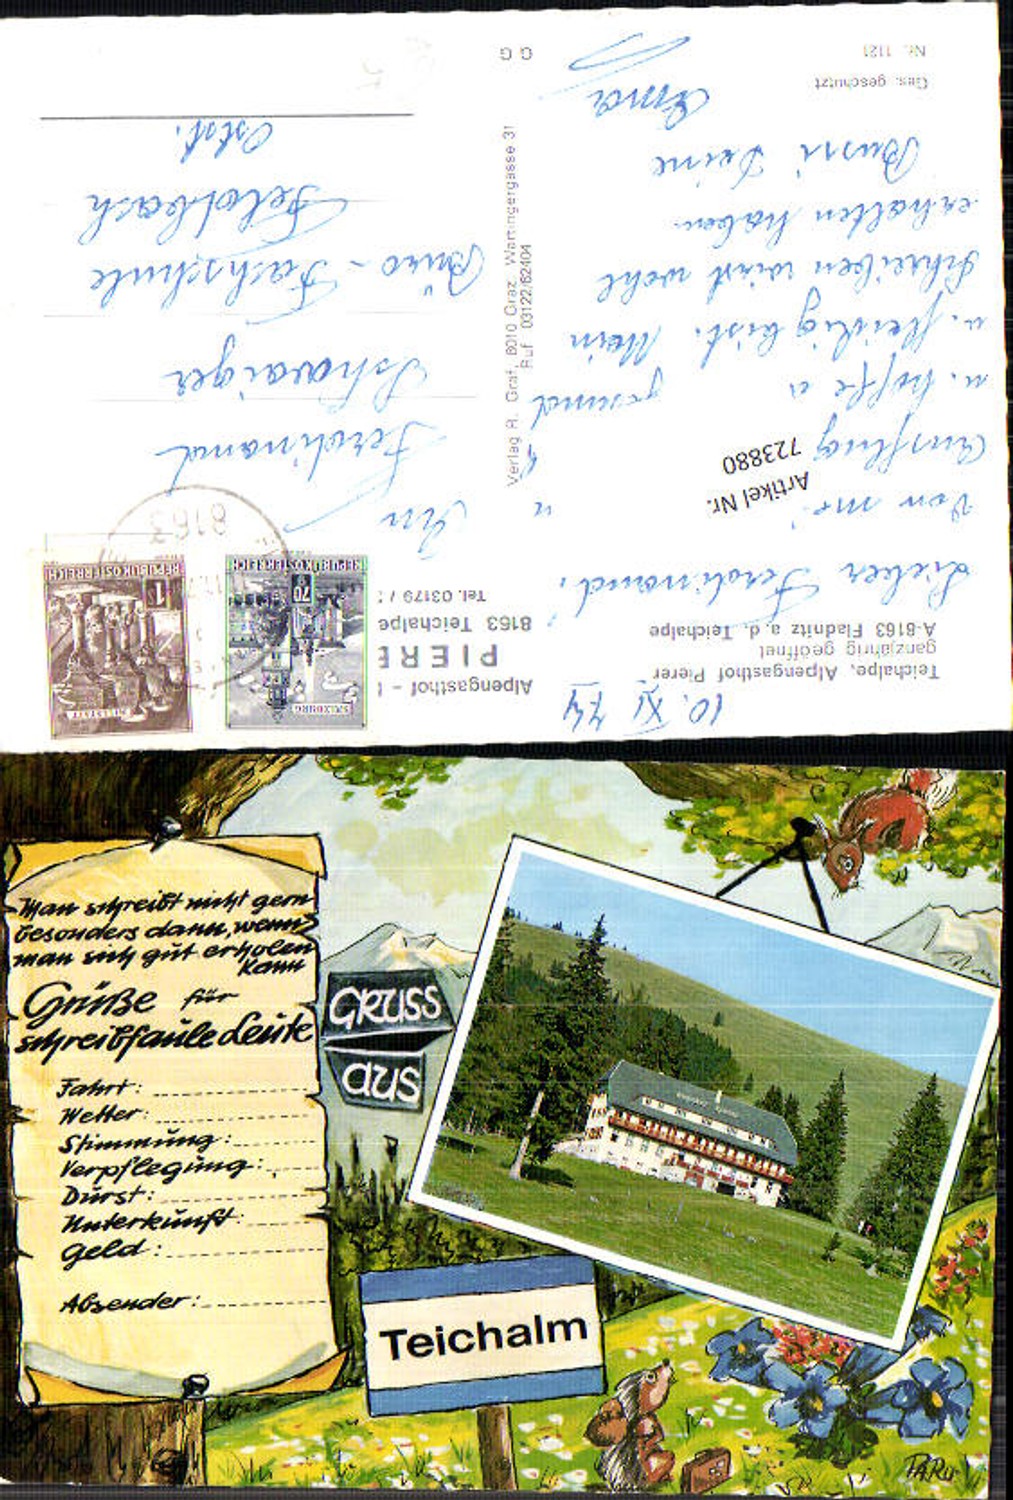 Teichalpe, Alpengasthof Pierer
ganzjährig geöffnet
A-8163 Fladnitz a. d. Teichalpe
10. XI 74
Lieber Ferdinand!
Von
Ausflug
u. hoffe
gesund
u. fleißig bist. Mein
Schreiben wirst wohl
erhalten haben.
Bussi Deine
Oma
Artikel Nr.
723880
Ges. geschützt
Nr. 1121
Verlag R. Graf, 8010 Graz, Wartingergasse 31
Ruf 03122/82404
G G
Alpengasthof -
PIERE
8163 Teichalpe
Tel. 03179 /
REPUBLIK ÖSTERREICH
REPUBLIK ÖSTERREICH
8163
An
Ferdinand
Schwaiger
Büro - Fachschule
Feldbach
Ostst.
Man schreibt nicht gern
besonders dann, wenn
man sich gut erholen
kann
Grüße für
schreibfaule Leute
Fahrt:
Wetter:
Stimmung:
Verpflegung:
Durst:
Unterkunft:
Geld:
Absender:
GRUSS
aus
Teichalm
PARU